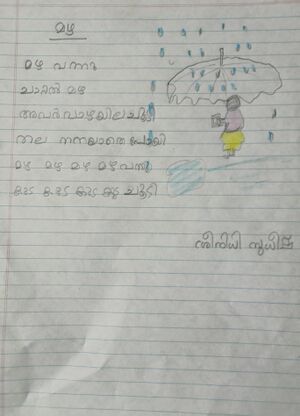 മഴ
മഴ വന്നു
ചാറ്റൽ മഴ
അവർ വാഴയില ചൂടി
തല നനയാതെ പോയി
മഴ മഴ മഴ മഴ വന്നു
കുട കുട കുട കുട ചൂടി
ശ്രീനിധി സുധീഷ്